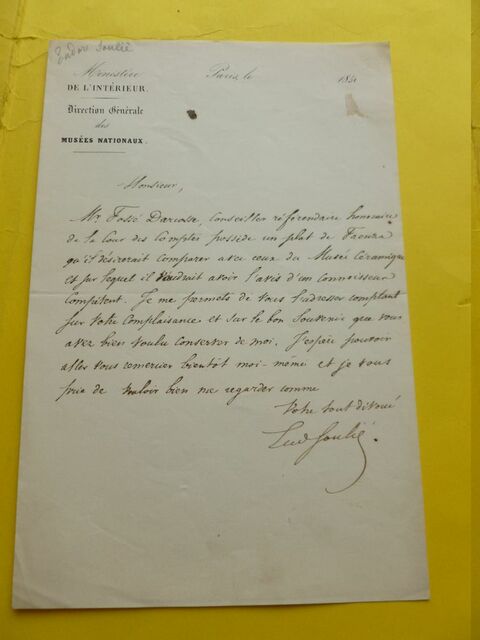 Eudore Soulié
Ministère
DE L'INTÉRIEUR.
Direction Générale
des
MUSÉES NATIONAUX.
Paris, le
185
Monsieur,
Mr. Fossé Darcosse, conseiller référendaire honoraire
de la Cour des Comptes possède un plat de Faenza
qu'il désirerait comparer avec ceux du Musée Céramique
et sur lequel il voudrait avoir l'avis d'un connaisseur
compétent. Je me permets de vous l'adresser comptant
sur votre complaisance et sur le bon souvenir que vous
avez bien voulu conserver de moi. J'espère pouvoir
aller vous remercier bientôt moi-même et je vous
prie de vouloir bien me regarder comme
Votre tout dévoué
Eud Soulié.